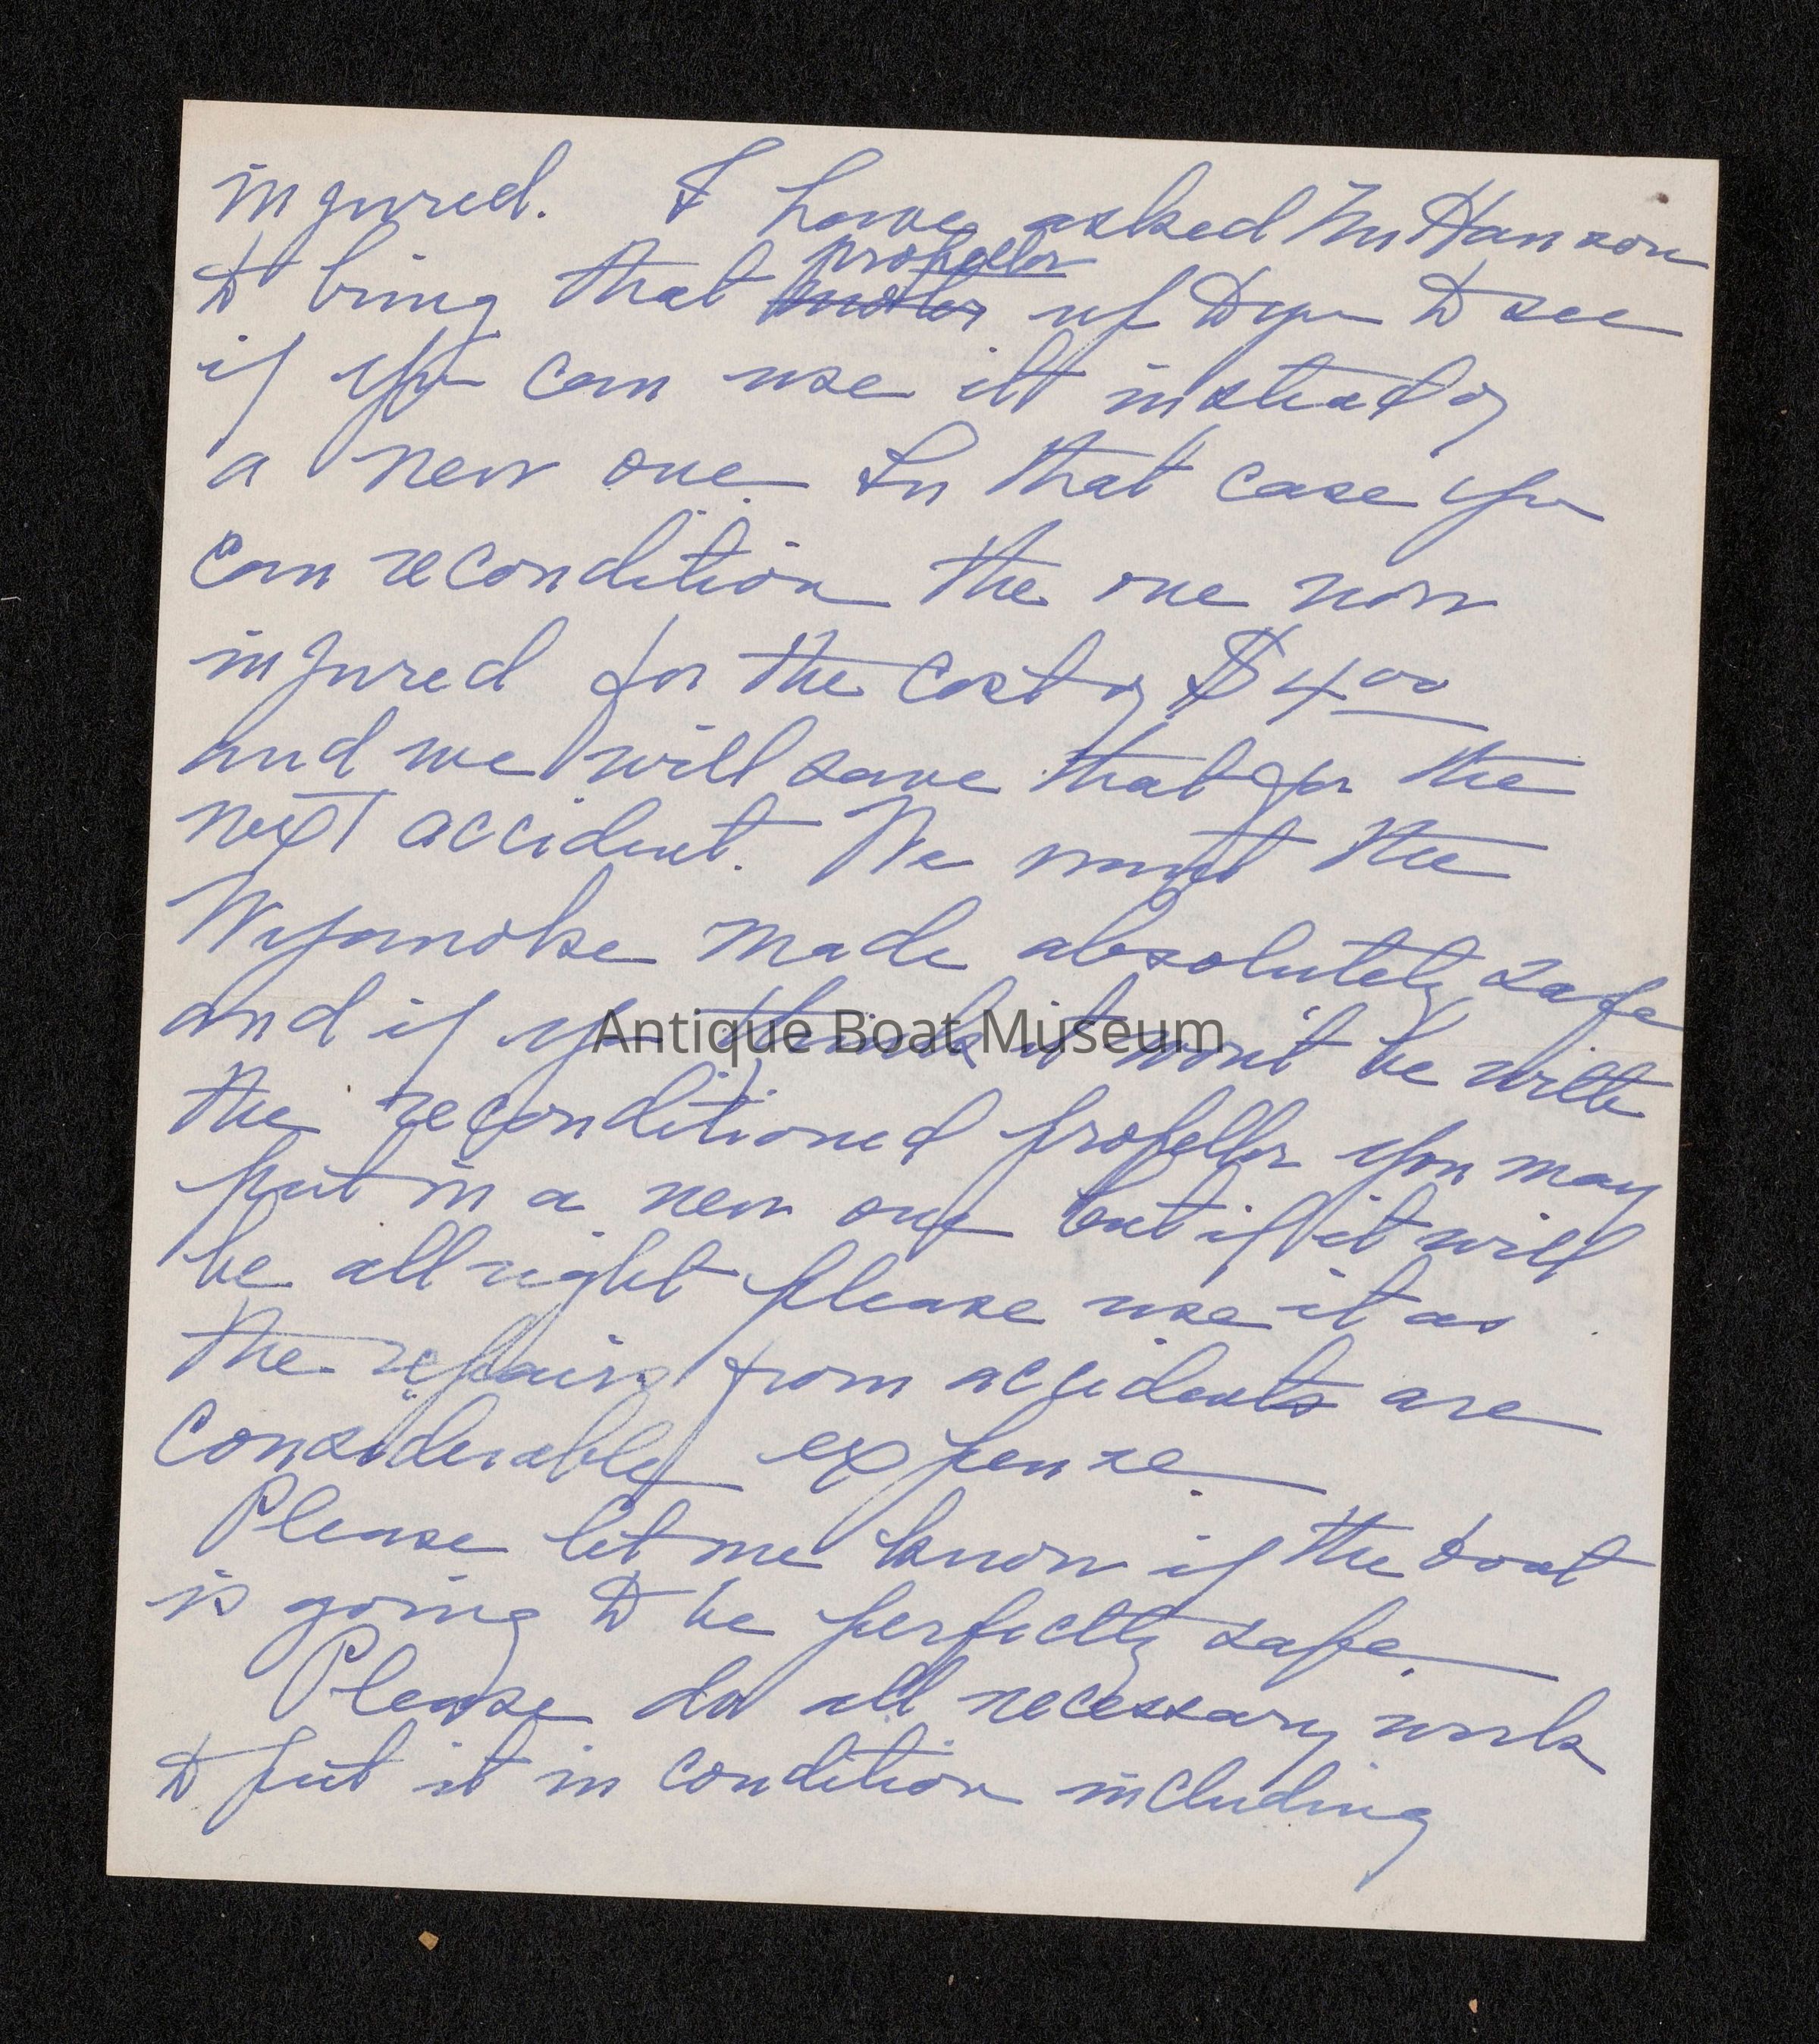 injured. I have asked Mr Hanson
to bring that motor propellor up to you to see
if you can use it instead of
a new one. In that case you
can recondition the one now
injured for the cost of $4.00
and we will save that for the
next accident. We want the
Wyanoke made absolutely safe
and if you think it won't be with
the reconditioned propellor you may
put in a new one but if it will
be all right please use it as
the repairs from accidents are
considerable expense.
Please let me know if the boat
is going to be perfectly safe.
Please do all necessary work
to put it in condition including
Antique Boat Museum